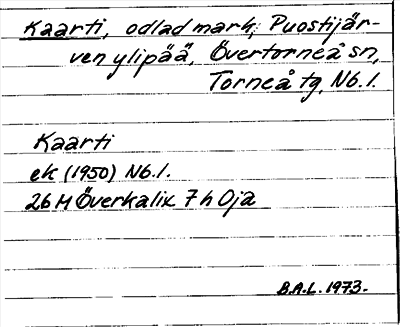 Kaarti, odlad mark, Puostijär-
ven ylipää, Övertorneå sn,
Torneå tg, Nb.l.
Kaarti
ek (1950) Nb.l.
26 M Överkalix 7 h Oja
B.A.L. 1973.